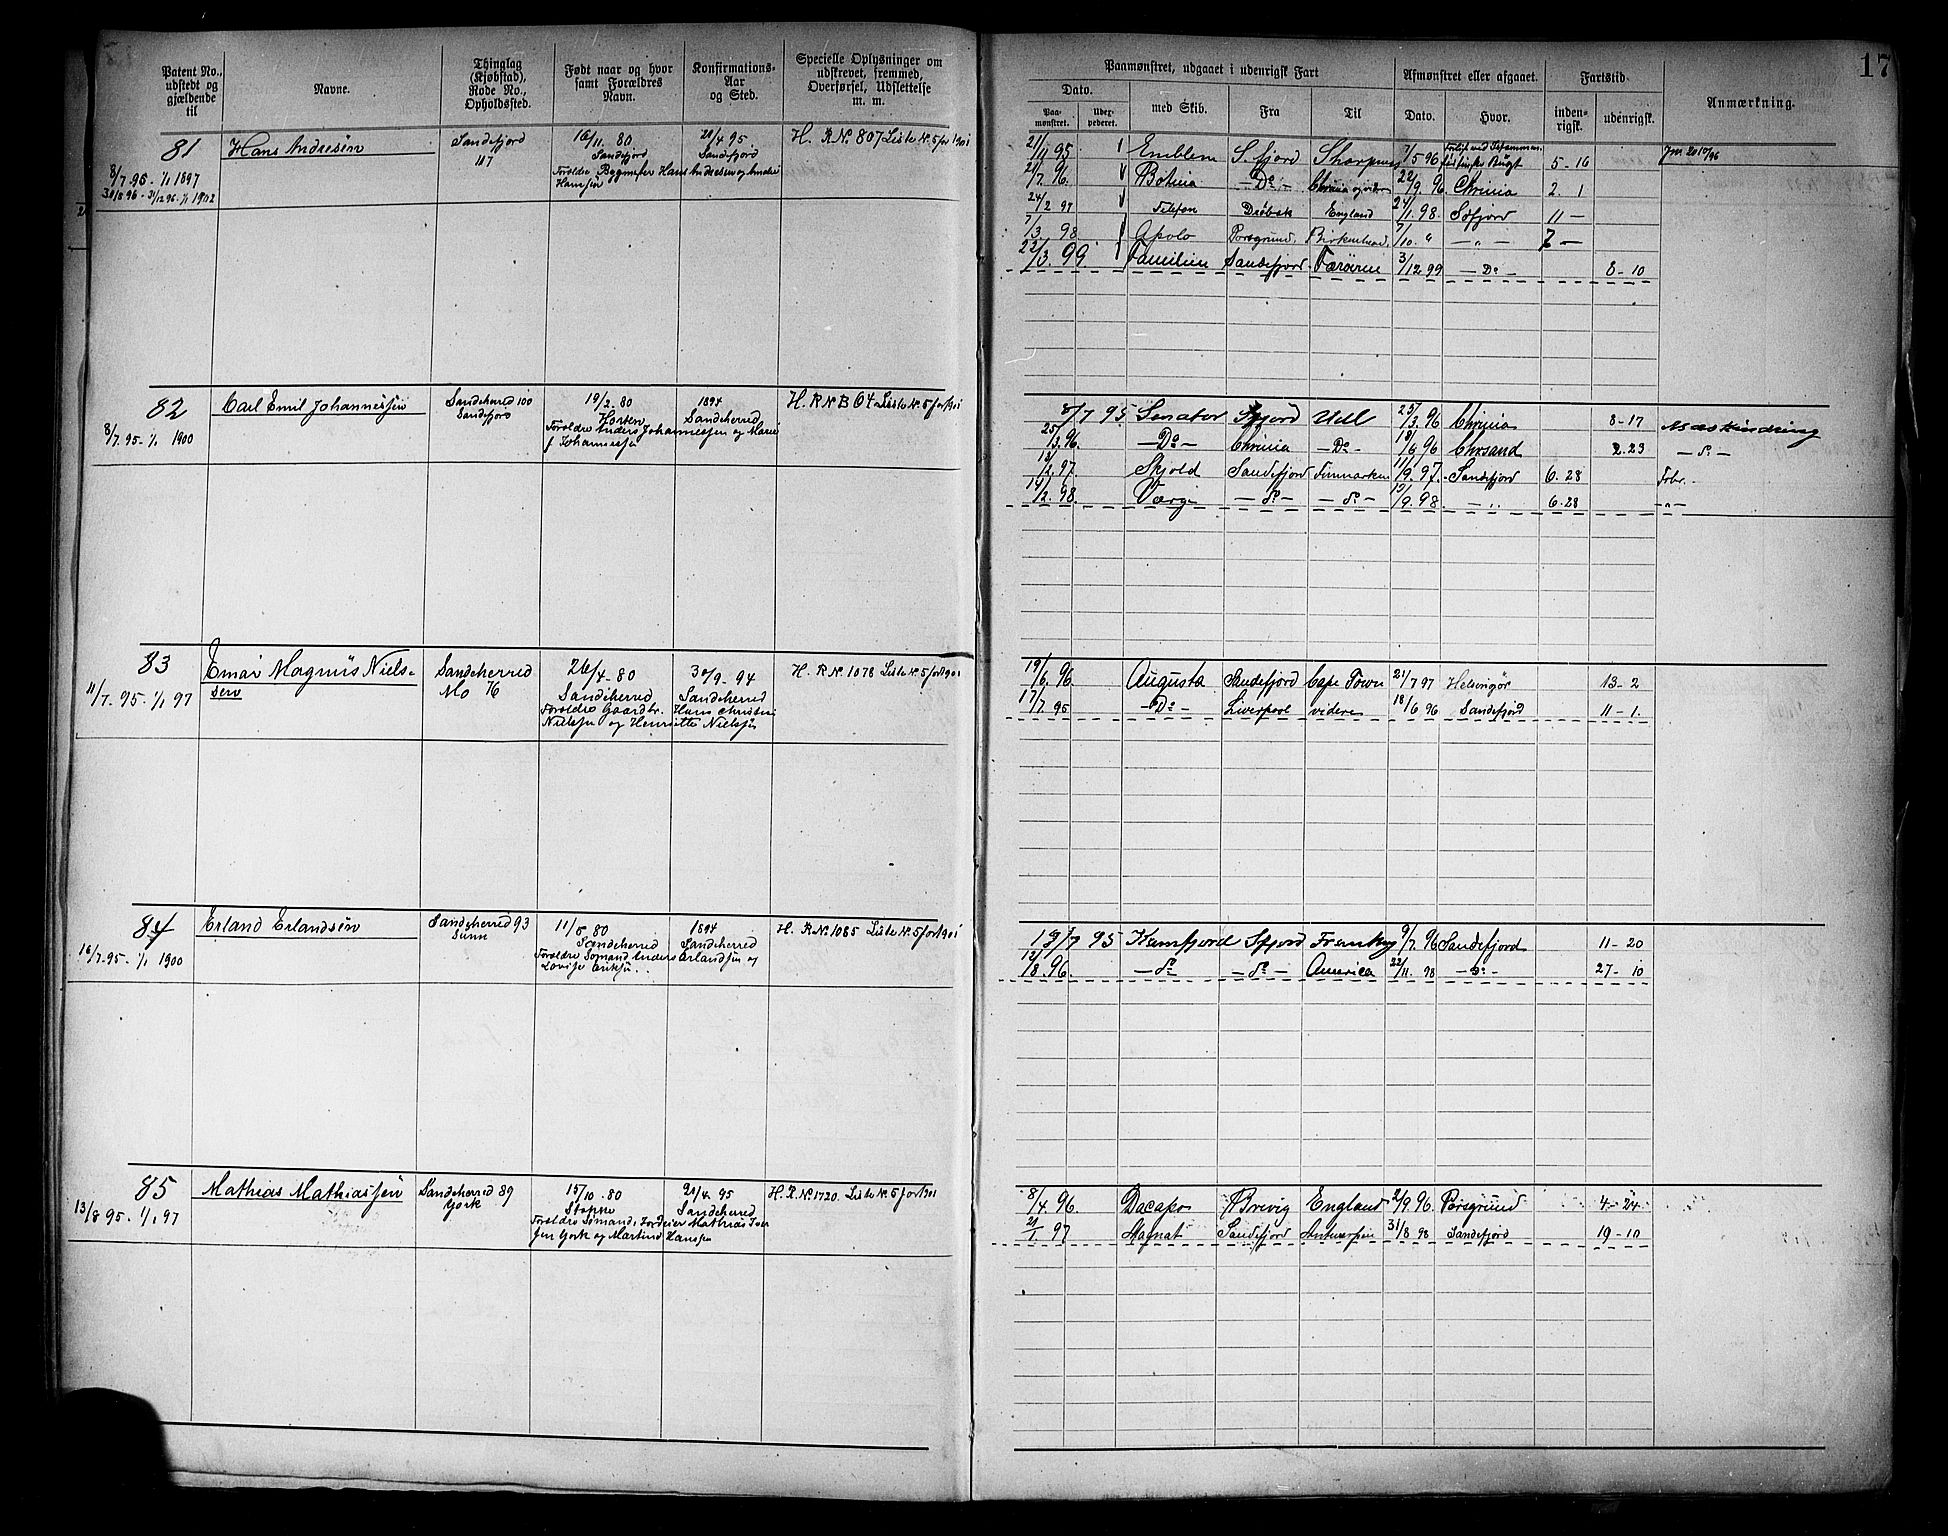 17
Patent No., udstedt og gjældende til
Navne.
Thinglag (Kjøbstad), Rode No., Opholdssted.
Født naar og hvor samt Forældres Navn.
Konfirmations- Aar og Sted.
Specielle Oplysninger om udskrevet, fremmed, Overførsel, Udslettelse m. m.
Paamønstret, udgaaet i udenrigsk Fart
Afmønstret eller afgaaet.
Fartstid
Anmærkning.
Dato.
Paa- mønstret.
med Skib.
Fra
Til
Dato.
Hvor.
inden- rigsk.
udenrigsk.
81
8/7 96 - 1/1 1897
Hans Andresen
Sandefjord
117
16/11 80
Sandefjord
Forældre Bygmester Hans Andresen og
Hansen
21/4 95
Sandefjord
H. R No 807 Liste No 5 for 1901
21/11 95 Emblem S. fjord Sharpness 7/5 96 5-16
21/7 96 Botnia - Do - 22/9 96 Chrinia 2. 1
24/2 97 Telefon Drøbak England 24/11 98 Sefjord 11 -
7/3 98 Apolo Porsgrund Birkenhead 7/10 " - " - 7 -
22/3 99 Familien Sandefjord Færøerne 3/12 99 - Do - 8 - 10
82
8/7 95 - 1/1 1900
Carl Emil Johannessen
Sandeherred 100
Sandefjord
19/2 80
Horten
Forældre Anders Johannessen og Marie
f Johannessen
1894
Sandeherred
H. R No B 64 Liste No 5 for 1901
8/7 95 Senator Sfjord Udl 25/3 96 Chrinia 8-17
25/3 96 - Do - Chrinia - Do - 18/6 96 Chrsand 2.23 - Do -
Skjold Sandefjord Finmarken 11/9 97 Sandefjord 6.28
14/2 98 Værge - Do - - Do - 13/9 98 - " 6.28 - " -
83
11/7 - 95 - 1/1 97
Einar Magnus Niels-
sen
Sandeherred
Mo 76
26/4 - 80
Sandeherred
Forældre Gaardbr. Hans Christian
Nielsen og Henriette Nielsen
30/9 - 94
Sandeherred
H. R No 1078 Liste No 5 for 1901
19/6 96 Augusta Sandefjord Cape Town 21/7 97 Helsingør 13-2
17/7 95 - Do - Liverpool videre 18/6 96 Sandefjord 11-1.
84
16/7 95 - 1/1 1900
Erland Erlandsen
Sandeherred 93
Sunn
11/5 80
Sandeherred
Forældre Sømand Anders Erlandsen og
Lovise Eriksen
1894
Sandeherred
H. R No 1085 Liste No 5 for 1901
19/7 95 Kamfjord Sfjord Frankrig 9/7 96 Sandefjord 11-20
12/8 96 - Do - - Do - America 22/11 98 - Do - 27-10
85
13/8 95 - 1/1 97
Mathias Mathiassen
Sandeherred 89
York
15/10 80
Stokke
21/4 95
Sandeherred
H. R No 1720. Liste No 5 for 1901
8/4 96 Dacapo Brevig England 2/9 96 Porsgrund 4-24
21/1 97 Magnat Sandefjord Antwerpen 31/8 98 Sandefjord 19-10